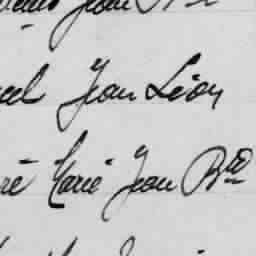 Jean
el Jean Léon
ré Marie Jean Bte